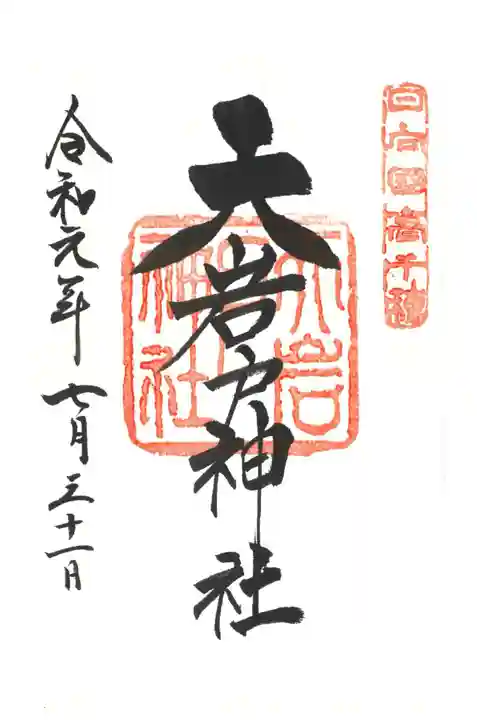 日向国高千穂
天岩戸神社
天岩戸神社
令和元年七月三十一日